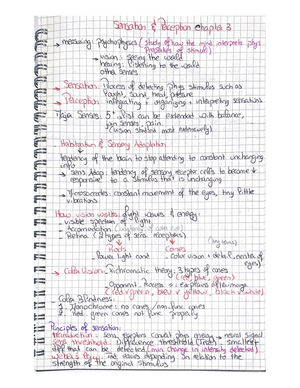 Sensation & Perception Chapter 3
→ measuring Psychophysics (Study of how the mind interprets phys.
Properties of stimuli)
→ vision: seeing the world
hearing: listening to the world
other senses
→ Sensation: Process of detecting phys. stimulus such as
light, sound, heat, pressure
→ Perception: integrating + organizing + interpreting sensations
Major Senses: 5* list can be extended with balance,
pain
(vision studied most extensively)
Habituation & Sensory Adaptation
tendency of the brain to stop attending to constant unchanging
info
→ Sens. Adap: tendency of sensory receptor cells to become ↓
responsive to a stimulus that is unchanging
→ Microsaccades: constant movement of the eyes, tiny little
vibrations
How vision works: light waves & energy
visible spectrum of light
- Accomodation
- Retina (2 types of sens receptors)
Rods
Cones
- color vision + detail, center of
eyes
→ Color Vision: Trichromatic theory: 3 types of cones
red, blue, green
Opponent-Process:
red v green, blue v yellow, black v white
- Color Blindness:
1. Monochrome: no cones / non func. cones
2. Red-green cones not func. properly
Principles of sensation:
Transduction: sens. receptors convert phys. energy → neural signal
Sens. threshold: Difference threshold (JND) - smallest
diff that can be detected (min. change in intensity detected)
JND varies depending in relation to the
strength of the original stimulus